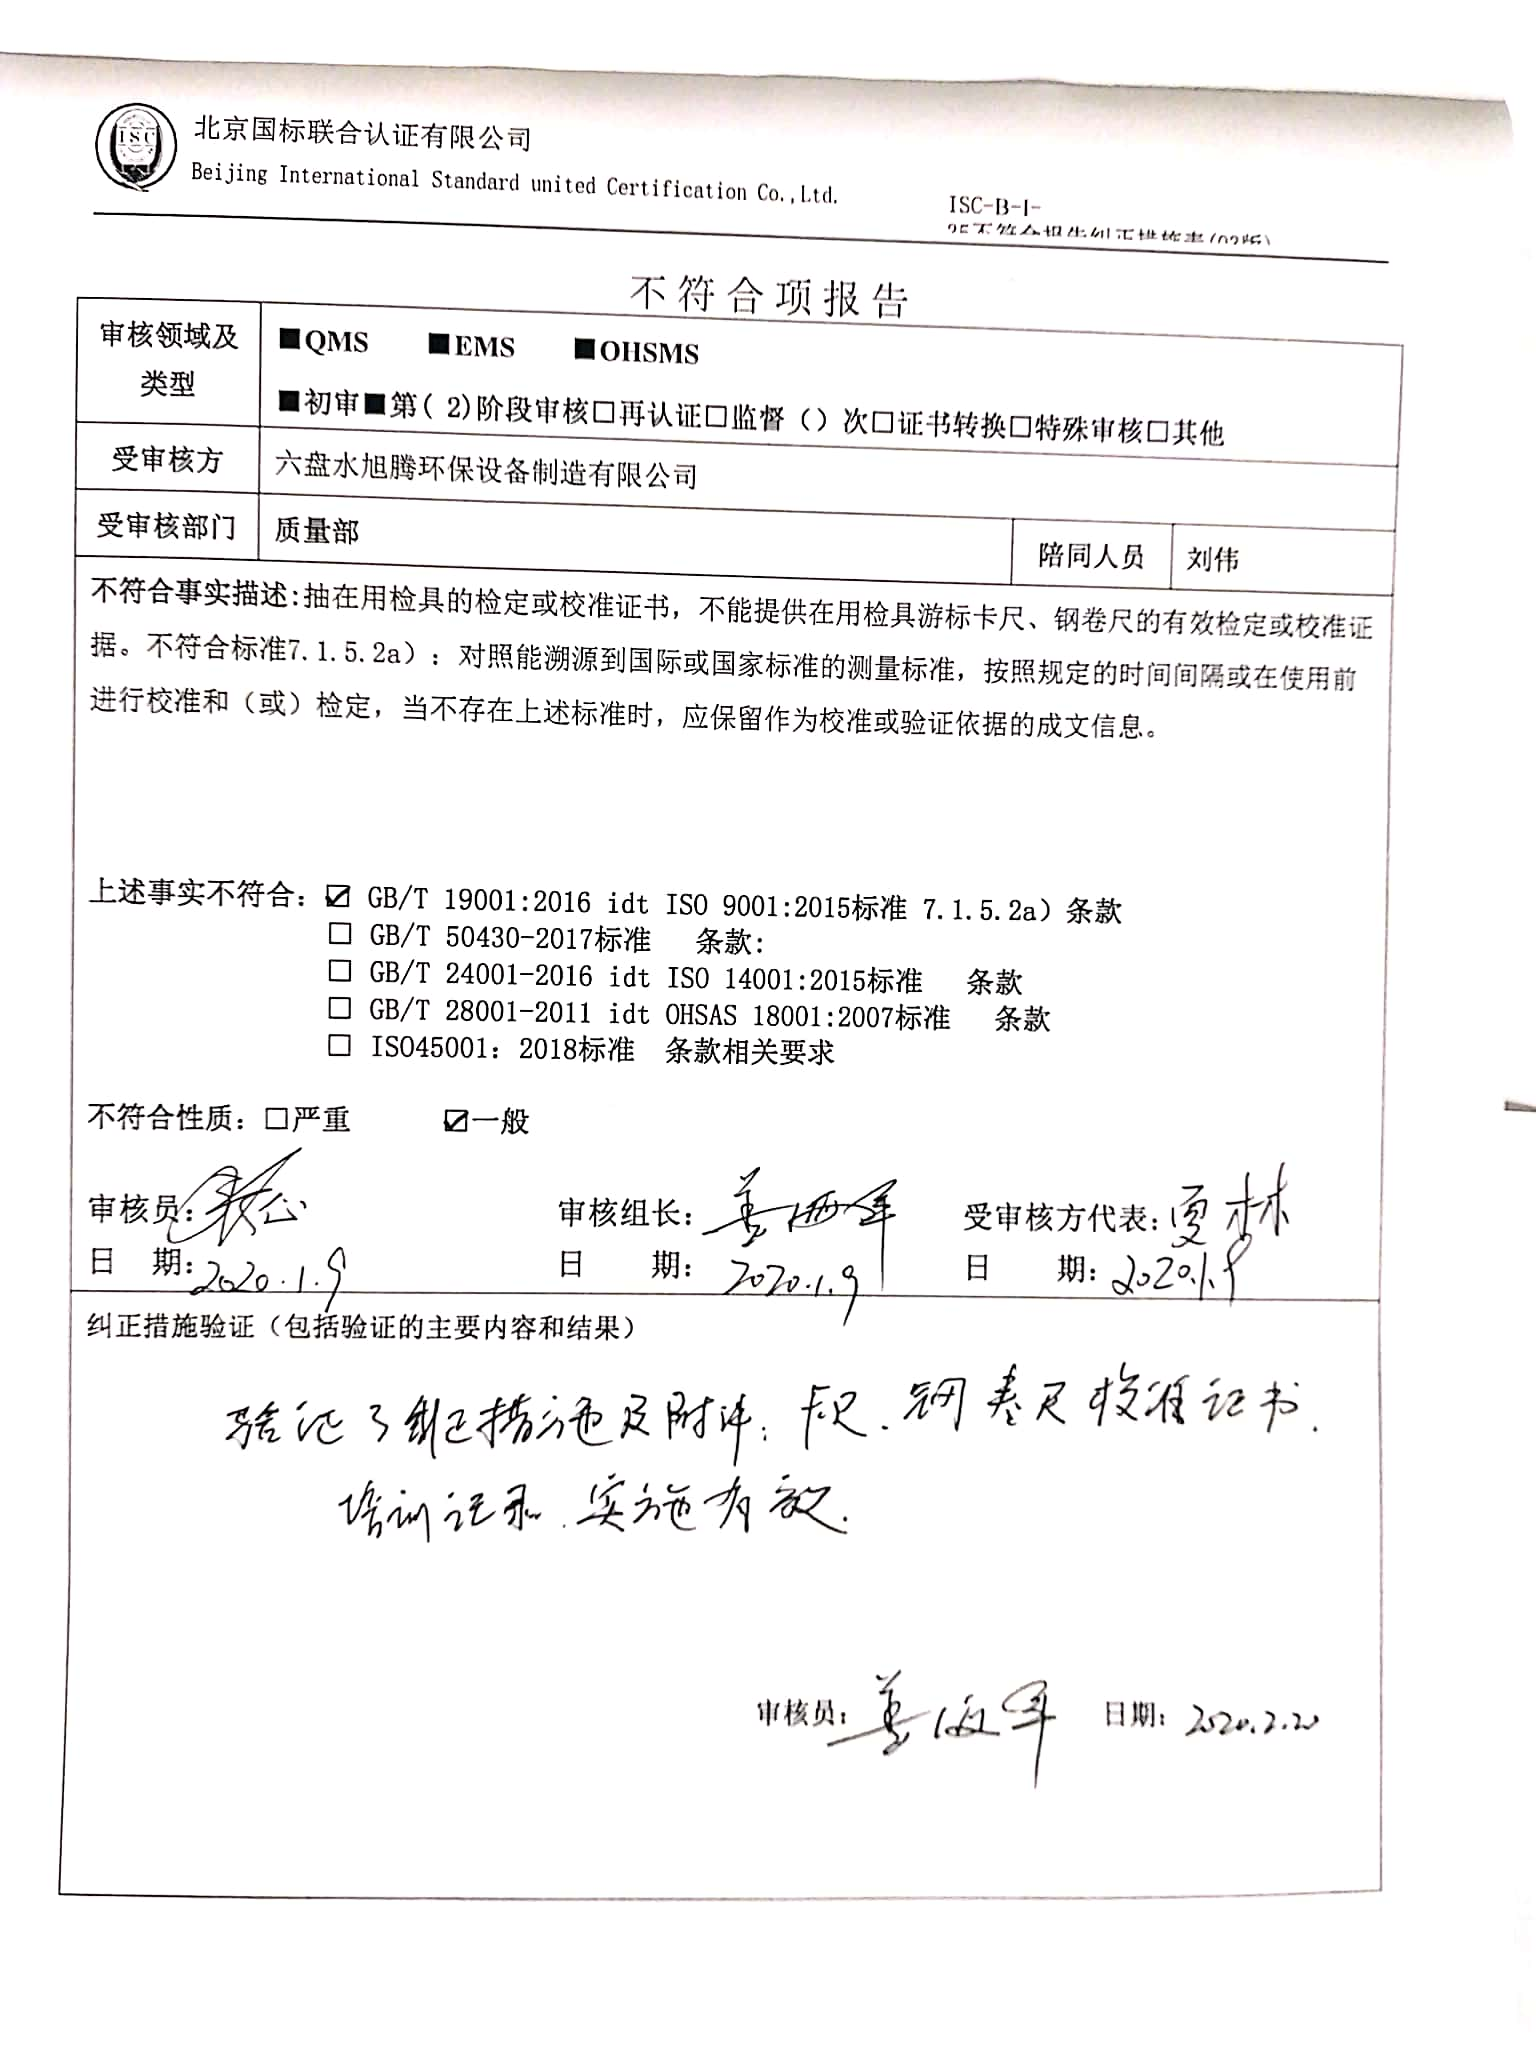 ISC
北京国标联合认证有限公司
Beijing International Standard united Certification Co.,Ltd.
ISC-B-I-
25不符合报告纠正措施表(02版)
不符合项报告
审核领域及
类型
■QMS ■EMS ■OHSMS
■初审■第( 2)阶段审核□再认证□监督（）次□证书转换□特殊审核□其他
受审核方 六盘水旭腾环保设备制造有限公司
受审核部门 质量部 陪同人员 刘伟
不符合事实描述:抽在用检具的检定或校准证书，不能提供在用检具游标卡尺、钢卷尺的有效检定或校准证
据。不符合标准7.1.5.2a）：对照能溯源到国际或国家标准的测量标准，按照规定的时间间隔或在使用前
进行校准和（或）检定，当不存在上述标准时，应保留作为校准或验证依据的成文信息。
上述事实不符合：☑ GB/T 19001:2016 idt ISO 9001:2015标准 7.1.5.2a）条款
□ GB/T 50430-2017标准 条款:
□ GB/T 24001-2016 idt ISO 14001:2015标准 条款
□ GB/T 28001-2011 idt OHSAS 18001:2007标准 条款
□ ISO45001：2018标准 条款相关要求
不符合性质：□严重 ☑一般
审核员: 审核组长: 受审核方代表:夏林
日 期:2020.1.9 日 期: 2020.1.9 日 期:2020.1.9
纠正措施验证（包括验证的主要内容和结果）
验证了纠正措施及附件：卡尺、钢卷尺校准证书、
培训记录、实施有效.
审核员: 日期: 2020.2.20